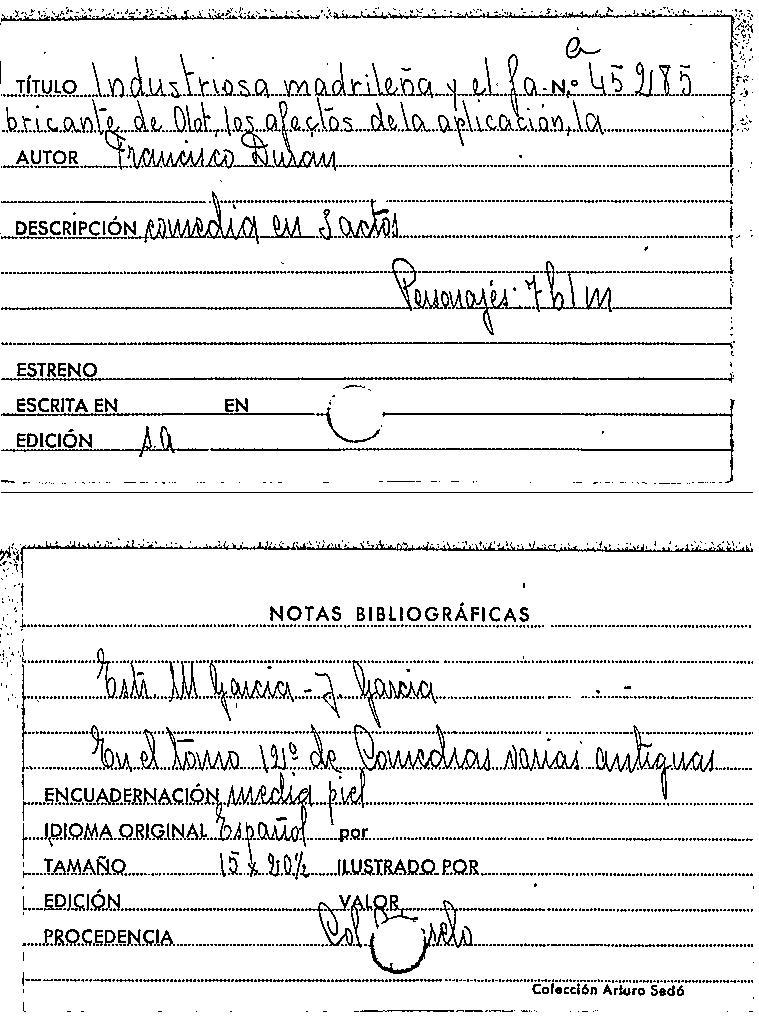 a
TÍTULO Industriosa madrileña y el fa- N.º 45285
bricante de Olot, los afectos de la aplicación, la
AUTOR Francisco Duran
DESCRIPCIÓN comedia en 3 actos
Personajes: 7 h 1 m
ESTRENO
ESCRITA EN EN
EDICIÓN s.a
NOTAS BIBLIOGRÁFICAS
Estr. M García - J. García
En el tomo 12º de Comedias varias antiguas
ENCUADERNACIÓN media piel
IDIOMA ORIGINAL Español por
TAMAÑO 15 x 20½ ILUSTRADO POR
EDICIÓN VALOR
PROCEDENCIA Col
Colección Arturo Sedó